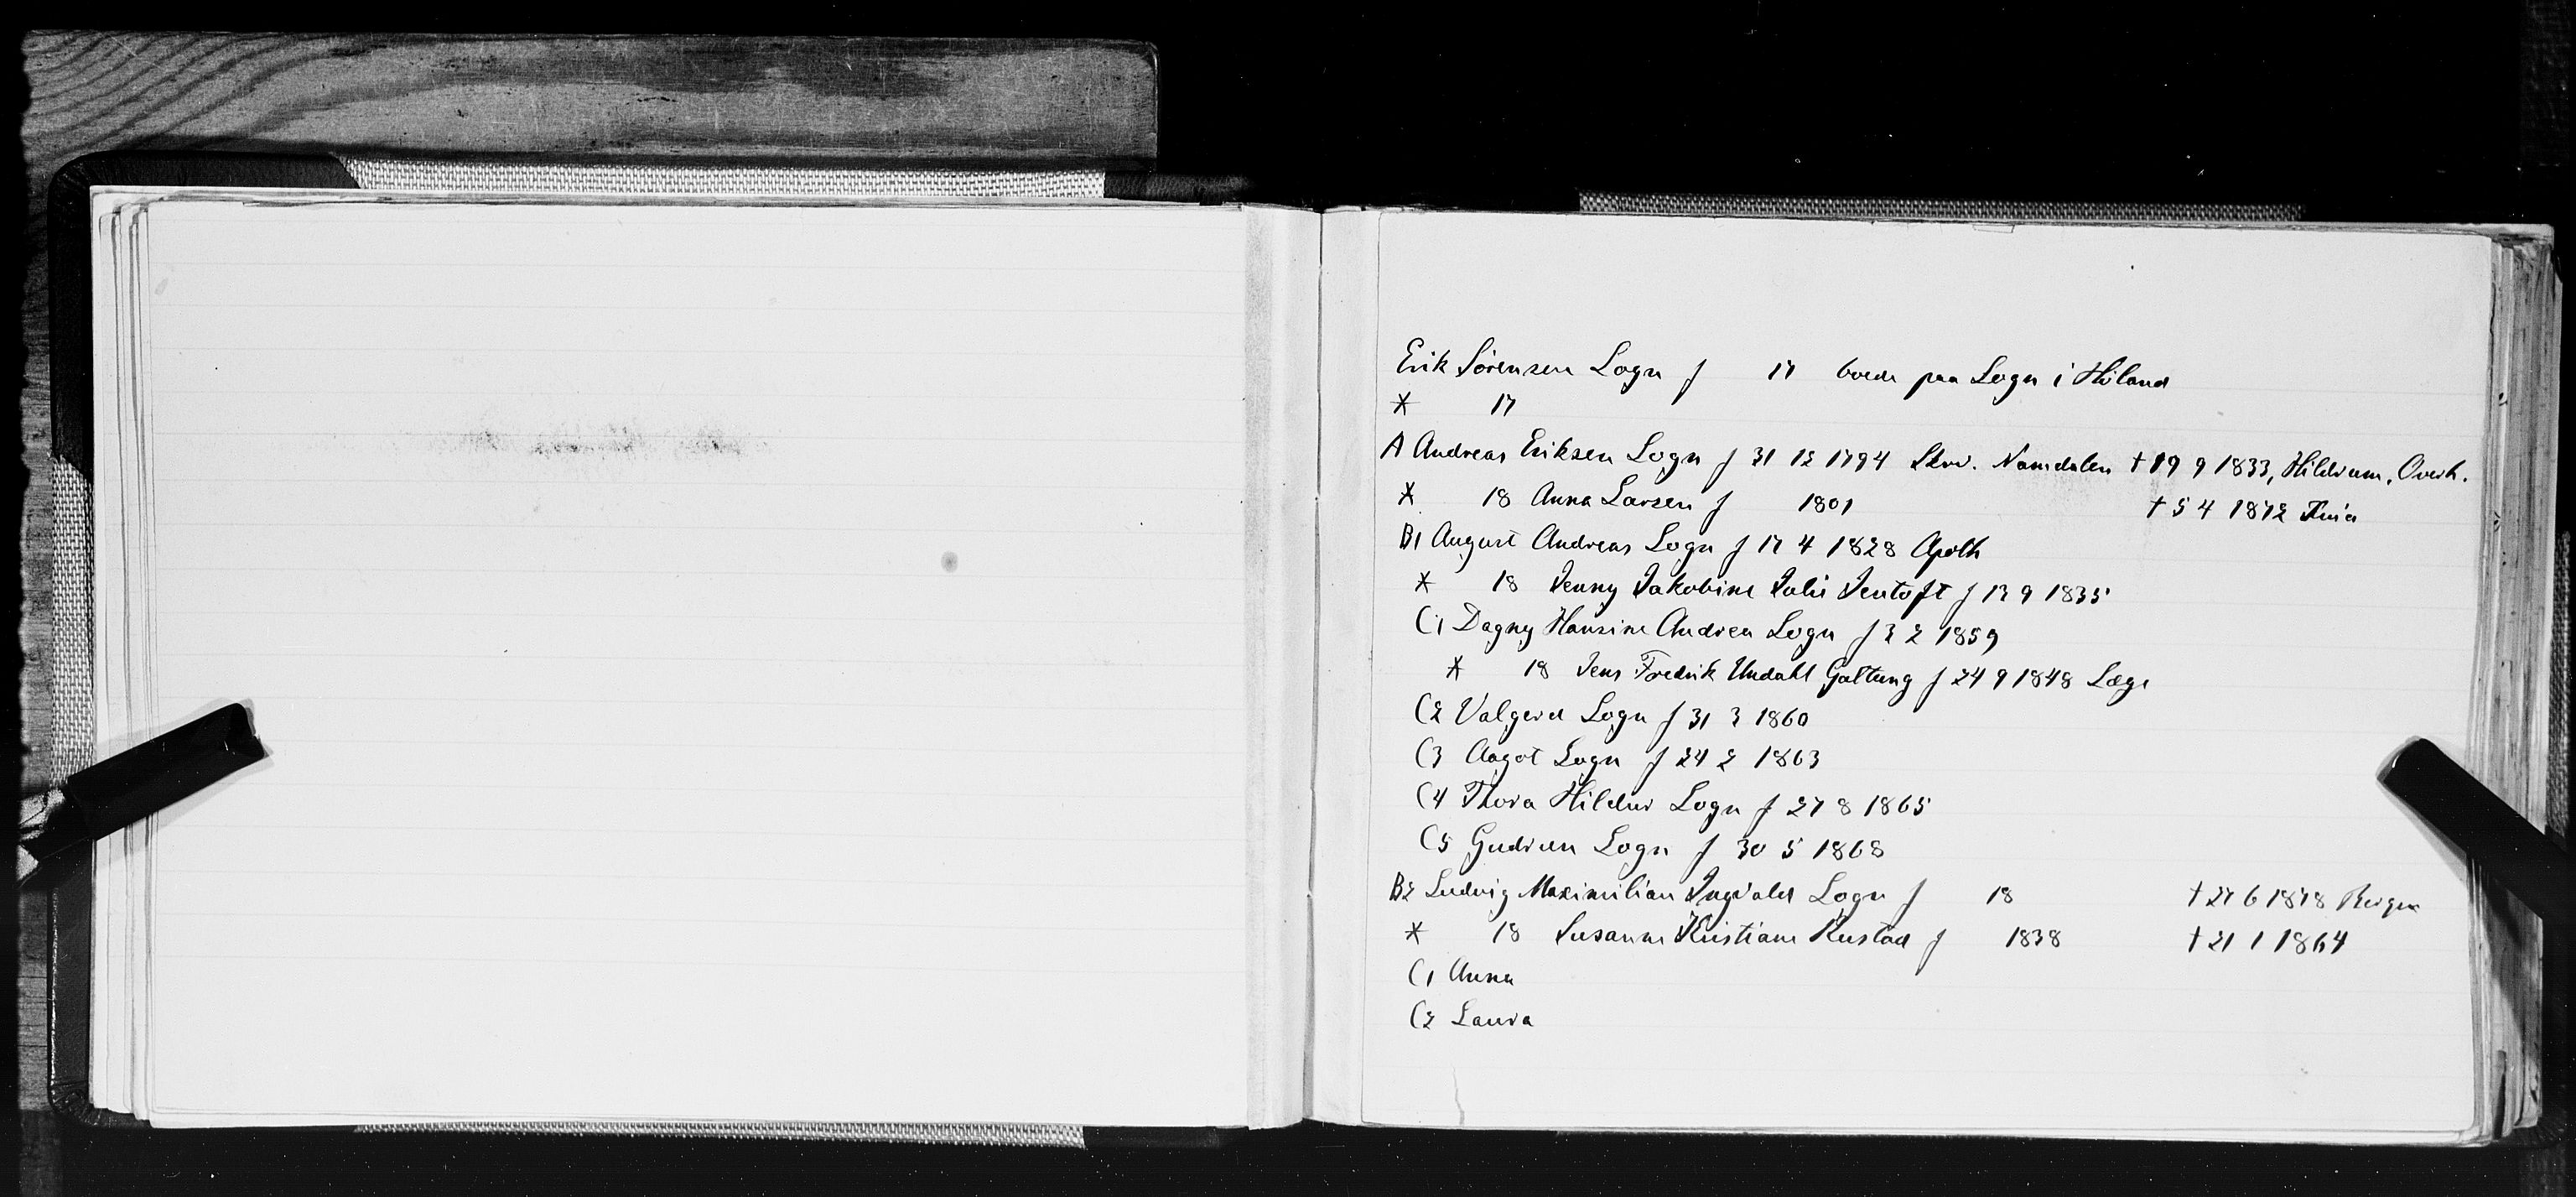 Erik Sörensen Logn f 17 boede paa Logn i Höland
* 17
A Andreas Eriksen Logn f 31 12 1794 Skrv. Namdalen † 19 9 1833, Hildrum, Overh.
* 18 Anna Larsen f 1801 † 5 4 1872
B1 August Andreas Logn f 17 4 1828 Apoth
* 18 Jenny Jakobine Julie Jentoft f 13 9 1835
C1 Dagny Hansine Andrea Logn f 3 2 1859
* 18 Jens Fredrik Undahl Galtung f 24 9 1848 Læge
C2 Valgerd Logn f 31 3 1860
C3 Aagot Logn f 24 2 1863
C4 Thora Hildur Logn f 27 8 1865
C5 Gudrun Logn f 30 5 1868
B2 Ludvig Maximilian Ingvald Logn f 18 † 27 6 1878 Bergen
* 18 Susanne Kristiane Rustad f 1838 † 21 1 1864
C1 Anna
C2 Laura